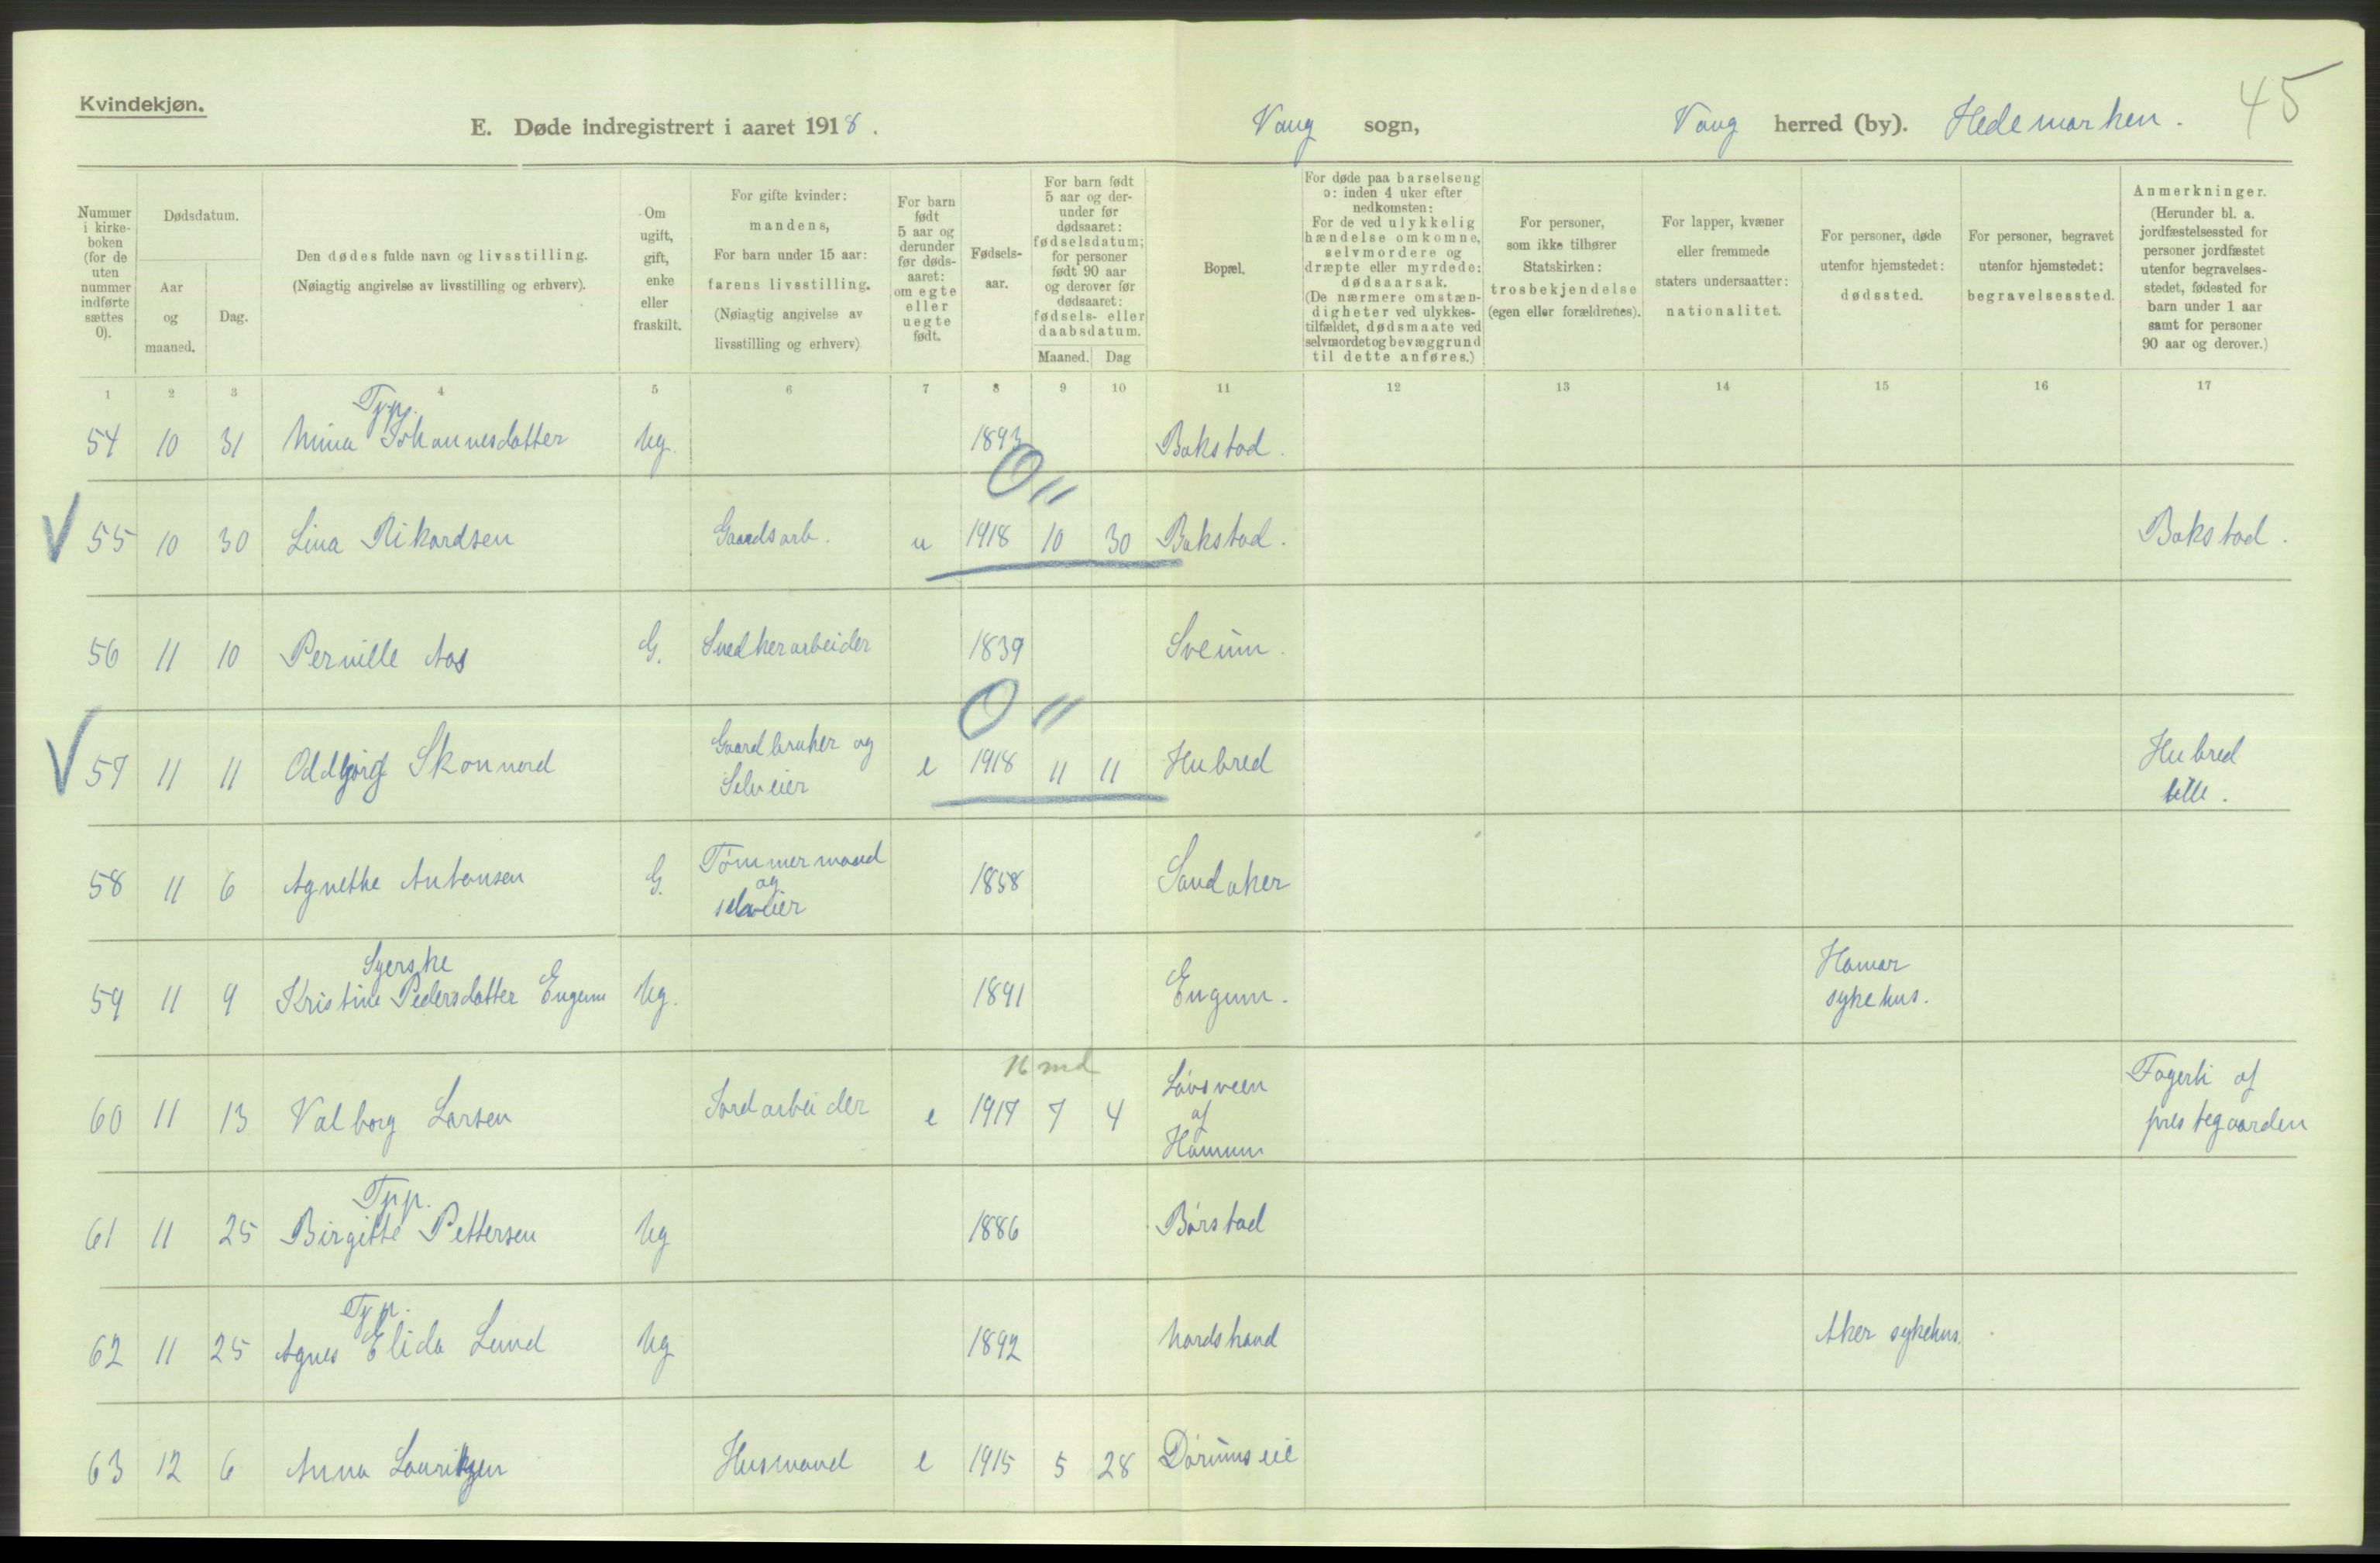 Kvindekjøn.
E. Døde indregistrert i aaret 1918.
Vang sogn,
Vang herred (by). Hedemarken.
45
Nummer i kirke-boken (for de uten nummer indførte sættes 0).
Dødsdatum.
Aar og maaned.
Dag.
Den dødes fulde navn og livsstilling.
(Nøiagtig angivelse av livsstilling og erhverv).
Om ugift, gift, enke eller fraskilt.
For gifte kvinder: mandens,
For barn under 15 aar: farens livsstilling.
(Nøiagtig angivelse av livsstilling og erhverv)
For barn født 5 aar og derunder før døds-aaret: om egte eller uegte født.
Fødsels-aar.
For barn født 5 aar og der-under før dødsaaret: fødselsdatum; for personer født 90 aar og derover før dødsaaret: fødsels- eller daabsdatum.
Maaned. Dag
Bopæl.
For døde paa barselseng ɔ: inden 4 uker efter nedkomsten:
For de ved ulykkelig hændelse omkomne, selvmordere og dræpte eller myrdede: dødsaarsak.
(De nærmere omstæn-digheter ved ulykkes-tilfældet, dødsmaate ved selvmordet og bevæggrund til dette anføres.)
For personer, som ikke tilhører Statskirken: trosbekjendelse (egen eller forældrenes).
For lapper, kvæner eller fremmede staters undersaatter: nationalitet.
For personer, døde utenfor hjemstedet: dødssted.
For personer, begravet utenfor hjemstedet: begravelsessted.
Anmerkninger.
(Herunder bl. a. jordfæstelsessted for personer jordfæstet utenfor begravelses-stedet, fødested for barn under 1 aar samt for personer 90 aar og derover.)
1 2 3 4 5 6 7 8 9 10 11 12 13 14 15 16 17
Tjp.
54 10 31 Mina Johannesdatter Ug. 1893 Bakstad.
0 11
V 55 10 30 Lina Rikardsen Gaardsarb. u 1918 10 30 Bakstad. Bakstad.
56 11 10 Pernille Aas G. Snedkerarbeider 1839 Sveum.
0 11
V 57 11 11 Oddbjørg Skonnord Gaardbruker og Selveier e 1918 11 11 Hubred Hubred lille.
58 11 6 Agnethe Antonsen G. Tømmermand og selveier 1858 Sandaker
Syerske
59 11 9 Kristine Pedersdatter Engum Ug. 1891 Engum. Hamar sykehus.
16 md
60 11 13 Valborg Larsen Jordarbeider e 1917 7 4 Løvsveen af Hamum Fagerli af prestegaarden
Tjp.
61 11 25 Birgitte Pettersen Ug 1886 Børstad
Tjp.
62 11 25 Agnes Elida Lund Ug 1892 Nordstrand Aker sykehus.
63 12 6 Anna Lauritzen Husmand e 1915 5 28 Dørumseie